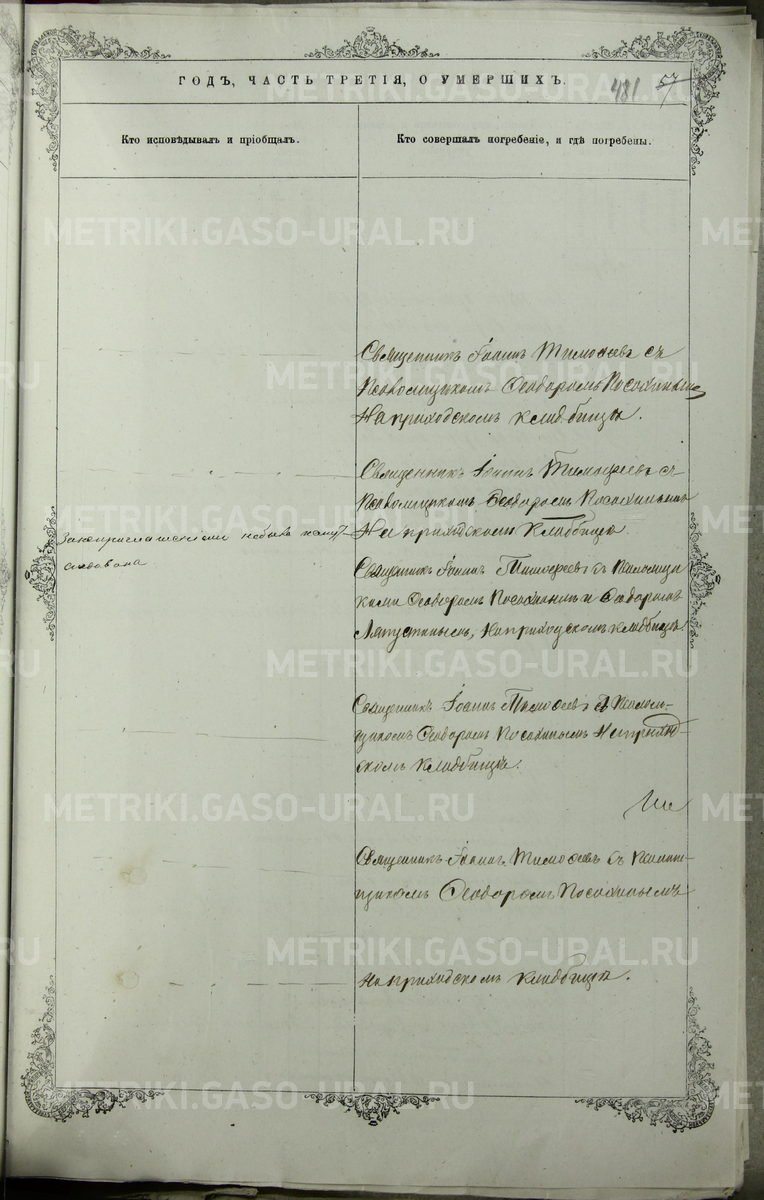 ГОДЪ, ЧАСТЬ ТРЕТІЯ, О УМЕРШИХЪ.
481 57
Кто исповѣдывалъ и пріобщалъ.
Кто совершалъ погребеніе, и гдѣ погребены.
Священникъ Іоаннъ Тимоѳеевъ съ
Псаломщикомъ Ѳеодоромъ Посохинымъ
На приходскомъ кладбищѣ.
Священникъ Іоаннъ Тимофеевъ съ
Псаломщикомъ Ѳеодоромъ Посохинымъ
На приходскомъ Кладбищѣ
небывъ
Священникъ Іоаннъ Тимоѳеевъ съ Псаломщи-
ками Ѳеодоромъ Посохинымъ и Ѳедоромъ
Ляпустинымъ, На приходскомъ кладбищѣ.
Священникъ Іоаннъ Тимоѳеевъ съ Псалом-
щикомъ Ѳеодоромъ Посохинымъ На приход-
скомъ Кладбищѣ.
Священникъ Іоаннъ Тимоѳеевъ съ Псалом-
щикомъ Ѳеодоромъ Посохинымъ
На приходскомъ кладбищѣ.
METRIKI.GASO-URAL.RU